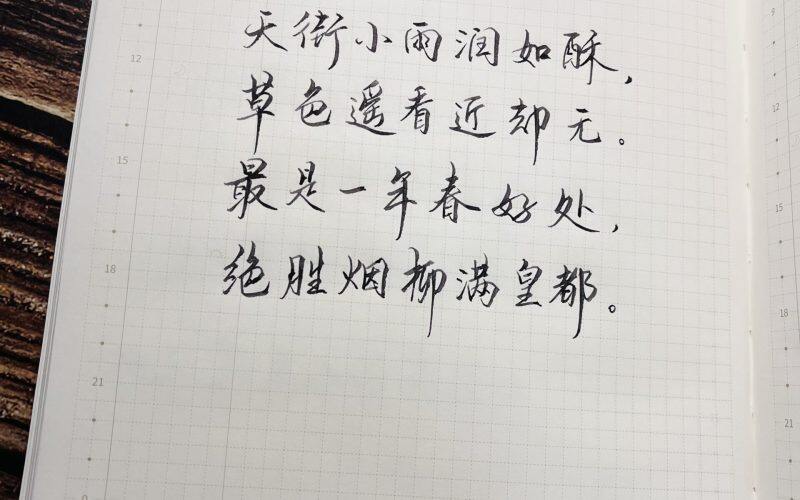 天街小雨润如酥，
草色遥看近却无。
最是一年春好处，
绝胜烟柳满皇都。
12
15
18
21
9
12
15
18
21